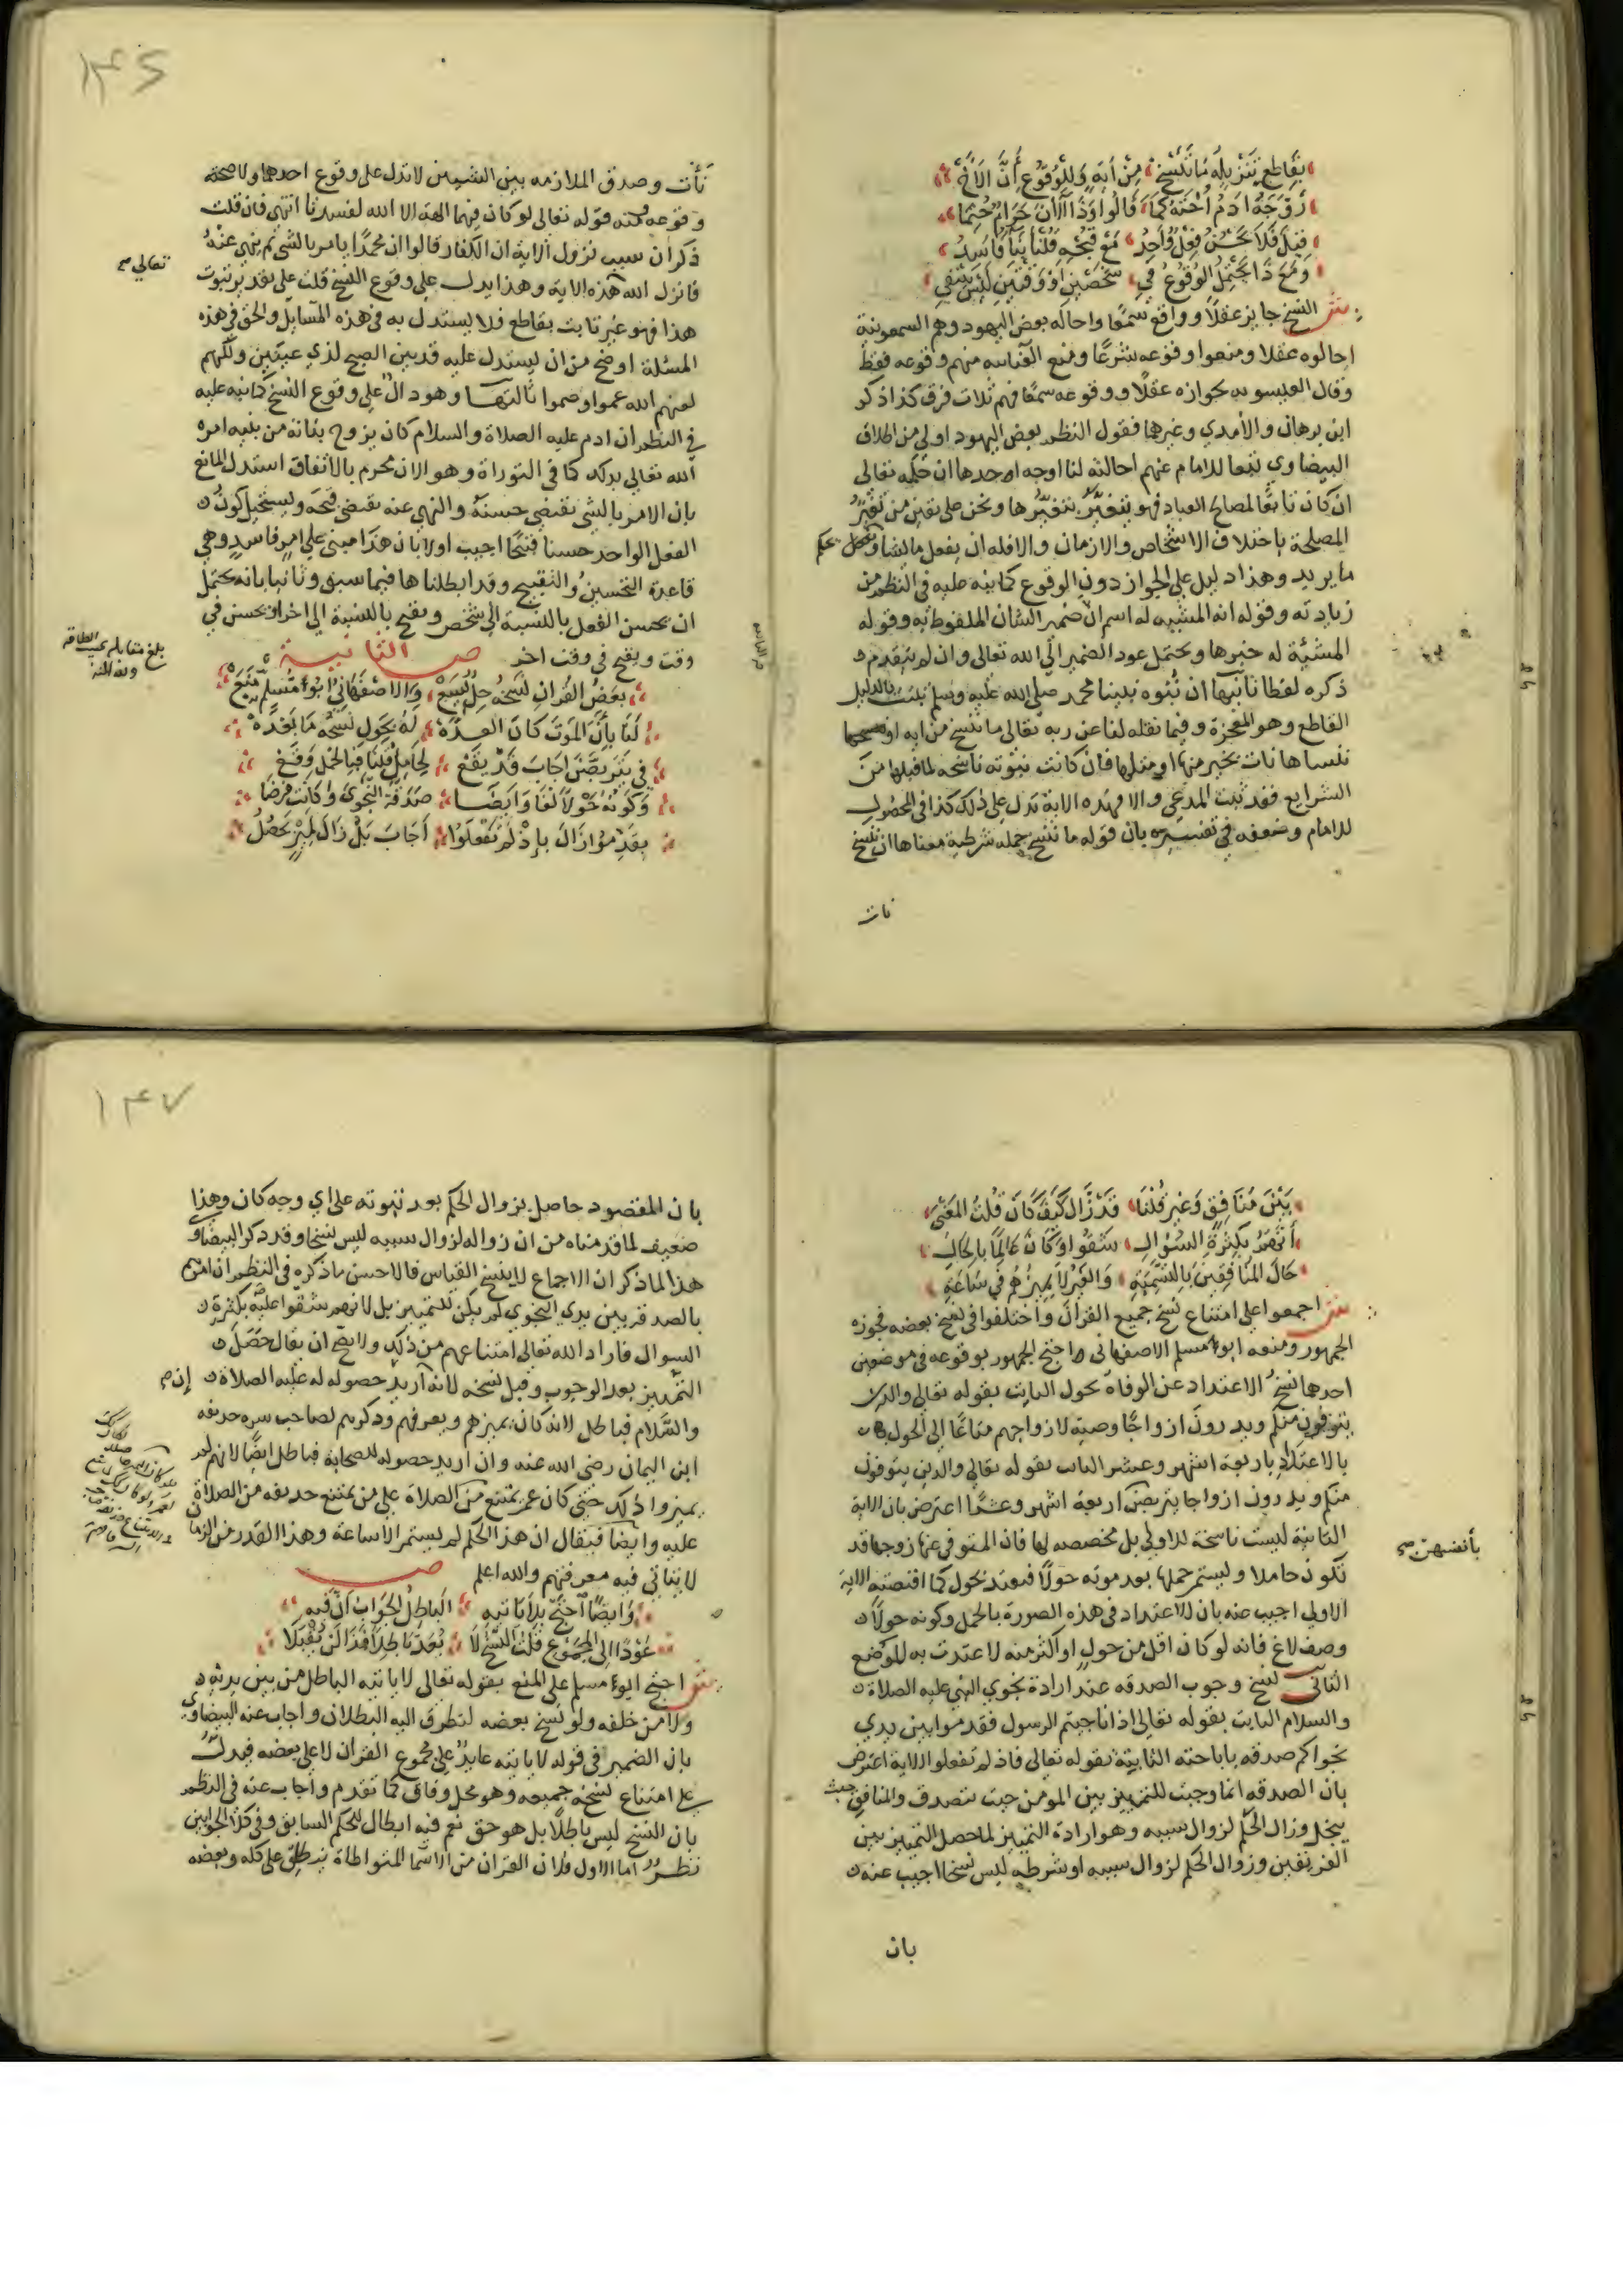 بِقَاطِعٍ تَنْزِيلُهُ مَا نَنْسَخْ مِنْ آيَةٍ وَلِلْوُقُوعِ أَنَّ الَاخْ
زَوَّجَهُ ادَمُ أُخْتَهُ كَمَا قَالُوا وَذَا الْآنَ حَرَامٌ حُتِمَا
قِيلَ فَلَا يَحْسُنُ فِعْلٌ وَاحِدُ مَعْ قُبْحِهِ قُلْنَا بِنَاً فَاسِدُ
وَمَعَ ذَا يَحْتَمِلُ الوُقُوعُ فِي شَخْصَيْنِ اوْ وَقْتَيْنِ لَيْسَ يَنْتَفِي
ش النسخ جايز عقلاً وواقع سمعًا واحاله بعض اليهود وهم السمعونية
احالوه عقلا ومنعوا وقوعه شرعًا ومنع العنانيه منهم وقوعه فقط
وقال العيسويه بجوازه عقلًا ووقوعه سمعًا فهم ثلاث فرق كذا ذكر
ابن برهان والآمدي وغيرهما فقول النظم بعض اليهود اولى من اطلاق
البيضاوي تبعا للامام عنهم احالته لنا اوجه احدها ان حكمه تعالى
ان كان تابعًا لمصالح العباد فهو يتغيّر بتغيّرها ونحن على يقين من تغيّر
المصلحة باختلاف الاشخاص والازمان والافله ان يفعل ما يشا ويحكم
ما يريد وهذا دليل على الجواز دون الوقوع كما نبه عليه في النظم من
زيادته وقوله انه المشبه له اسم ان ضمير الشان الملفوظ به وقوله
المشيّة له خبرها ويحتمل عود الضمير الى الله تعالى وان لم يتقدم
ذكره لفظا ثانيها ان نبوه نبينا محمد صلى الله عليه وسلم ثبتت بالدليل
القاطع وهو المعجزة وفيما نقله لنا عن ربه تعالى ما ننسخ من ايه او
ننساها نات بخير منها او مثلها فان كانت نبوته ناسخه لما قبلها من
الشرايع فقد ثبت المدعي والا فهذه الاية تدل على ذلك كذا في المحصول
للامام وضعفه في تفسيره بان قوله ما ننسخ جمله شرطية معناها ان ننسخ
نات
نأت وصدق الملازمه بين الشيين لا تدل على وقوع احدهما ولا صحة
وقوعه ومنه قوله تعالى لو كان فيهما الهة الا الله لفسدتا انتهى فان قلت
ذكر ان سبب نزول الاية ان الكفار قالوا ان محمدًا يامر بالشي ثم ينهى عنْهُ
فانزل الله هذه الاية وهذا يدل على وقوع النسخ قلت على تقدير ثبوت
تعالى صح
هذا فهو غير ثابت بقاطع فلا يستدل به في هذه المسايل والحق في هذه
المسئلة اوضح من ان يستدل عليه قد بين الصبح لذي عينين ولكنهم
لعنهم الله عموا وصموا ثالثها وهو دالّ على وقوع النسخ كما نبه عليه
في النظم ان ادم عليه الصلاة والسلام كان يزوج بناته من بنيه امره
الله تعالى بذلك كما في التوراة وهو الان محرم بالاتفاق استدل المانع
بان الامر بالشي يقتضي حسنه والنهي عنه يقتضي قبحه ويستحيل كون
الفعل الواحد حسنا قبيحًا اجيب اولا بان هذا مبني على امر فاسد وهي
قاعدة التحسين والتقبيح وقد ابطلناها فيما سبق وثانيا بانه يحتمل
ان يحسن الفعل بالنسبة الى شخص ويقبح بالنسبة الى اخر او يحسن في
وقت ويقبح في وقت اخر ص الثانية
بلغ مقابلة بحسب الطاقه
ولله المنه
بَعْضُ القُرانِ نَسْخُهُ حِلٌّ يَسَعْ وَالاصْفَهَانِيُّ أبُو مُسْلِمْ مَنَعْ
لَنَا بِأَنَّ المَوْتَ كَانَ العِدَّهْ لَهُ بِحَوْلٍ نَسْخُهُ مَا بَعْدَهْ
فِي يَتَرَبَّصْنَ اجَابَ قَدْ يَقَعْ لِحَامِلٍ قُلْنَا فَبِالحَمْلِ وَقَعْ
وَكَوْنُهُ حَوْلًا لَغَا وَايْضَا صَدَقَةُ النَّجْوَى وَكَانَتْ فَرْضَا
بِقَدِّمُوا زَالَ بِإِذْ لَمْ تَفْعَلُوا أَجَابَ بَلْ زَالَ لِمَيْزٍ يَحْصُلُ
بَيْنَ مُنَافِقٍ وَغَيْرٍ قُلْنَا قَدْ زَالَ كَيْفَ كَانَ قُلْتُ المَعْنَى
أَنَّهُمُ بِكَثْرَةِ السُّؤَالِ شَقُّوا وَكَانَ عَالِمًا بِالحَالِ
حَالِ المُنَافِقِينَ بِالتَّسْمِيَةِ وَالغَيْرُ لَا يَمِيزُهُمْ فِي سَاعَةِ
ش اجمعوا على امتناع نسخ جميع القران واختلفوا في نسخ بعضه فجوزه
الجمهور ومنعه ابو مسلم الاصفهاني واحتج الجمهور بوقوعه في موضعين
احدها نسخ الاعتداد عن الوفاة بحول الثابت بقوله تعالى والذين
يتوفون منكم ويذرون ازواجًا وصية لازواجهم متاعًا الى الحول
بالاعتداد باربعة اشهر وعشر الثابت بقوله تعالى والذين يتوفون
منكم ويذرون ازواجا يتربصن اربعة اشهر وعشرًا اعترض بان الاية
بأنفسهن صح
الثانية ليست ناسخة للاولى بل مخصصه لها فان المتوفى عنها زوجها قد
تكون حاملا ويستمر حملها بعد موته حولًا فتعتد بحول كما اقتضته الاية
الاولى اجيب عنه بان الاعتداد في هذه الصورة بالحمل وكونه حولًا
وصف لاغ فانه لو كان اقل من حول او اكثر منه لاعتدت به الموضع
الثاني نسخ وجوب الصدقه عند ارادة نجوى النبي عليه الصلاة
والسلام الثابت بقوله تعالى اذا ناجيتم الرسول فقدموا بين يدي
نجواكم صدقه باباحته الثابتة بقوله تعالى فاذ لم تفعلوا الاية اعترض
بان الصدقه انما وجبت للتمييز بين المومن حيث يتصدق والمنافق حيث
يبخل وزال الحكم لزوال سببه وهو ارادة التمييز لما حصل التمييز بين
الفريقين وزوال الحكم لزوال سببه او شرطه ليس نسخا اجيب عنه
بان
بان المقصود حاصل بزوال الحكم بعد ثبوته على اي وجه كان وهذا
ضعيف لما قدمناه من ان زواله لزوال سببه ليس نسخا وقد ذكر البيضاوي
هذا لما ذكر ان الاجماع لا ينسخ القياس فالاحسن ما ذكره في النظم ان امرهم
بالصدقة بين يدي النجوى لم يكن للتمييز بل لانهم شقوا عليه بكثرة
السوال فاراد الله تعالى امتناعهم من ذلك ولا يصح ان يقال حصل
التمييز بعد الوجوب وقبل نسخه لانه ان اريد حصوله له عليه الصلاة
والسَّلام فباطل لانه كان يميزهم ويعرفهم وذكرهم لصاحب سره حذيفه
ابن اليمان رضي الله عنه وان اريد حصوله للصحابة فباطل ايضًا لانهم لم
يميزوا ذلك حتى كان عمر يمتنع من الصلاة على من يمتنع حذيفه من الصلاة
عليه وايضا فيقال ان هذا الحكم لم يستمر الا ساعة وهذا القدر من الزمان
لا يتاتى فيه معرفتهم والله اعلم ص
وَايْضًا احْتَجَّ بِلَا يَاتِيهِ البَاطِلُ الجَوَابُ أنَّ فِيهِ
عَوْدًا إِلَى المَجْمُوعِ قُلْتُ النَّسْخُ لَا يُعَدُّ بَاطِلًا فَذَا لَنْ يُقْبَلَا
ش احتج ابو مسلم على المنع بقوله تعالى لا ياتيه الباطل من بين يديه
ولا من خلفه ولو نسخ بعضه لتطرق اليه البطلان واجاب عنه البيضاوي
بان الضمير في قوله لا ياتيه عايد على مجموع القران لا على بعضه فيدل
على امتناع نسخ جميعه وهو محل وفاق كما تقدم واجاب عنه في النظم
بان النسخ ليس باطلًا بل هو حق نعم فيه ابطال للحكم السابق وفي كلا الجوابين
نظر اما الاول فلان القران من الاسما المتواطاة يطلق على كله وبعضه